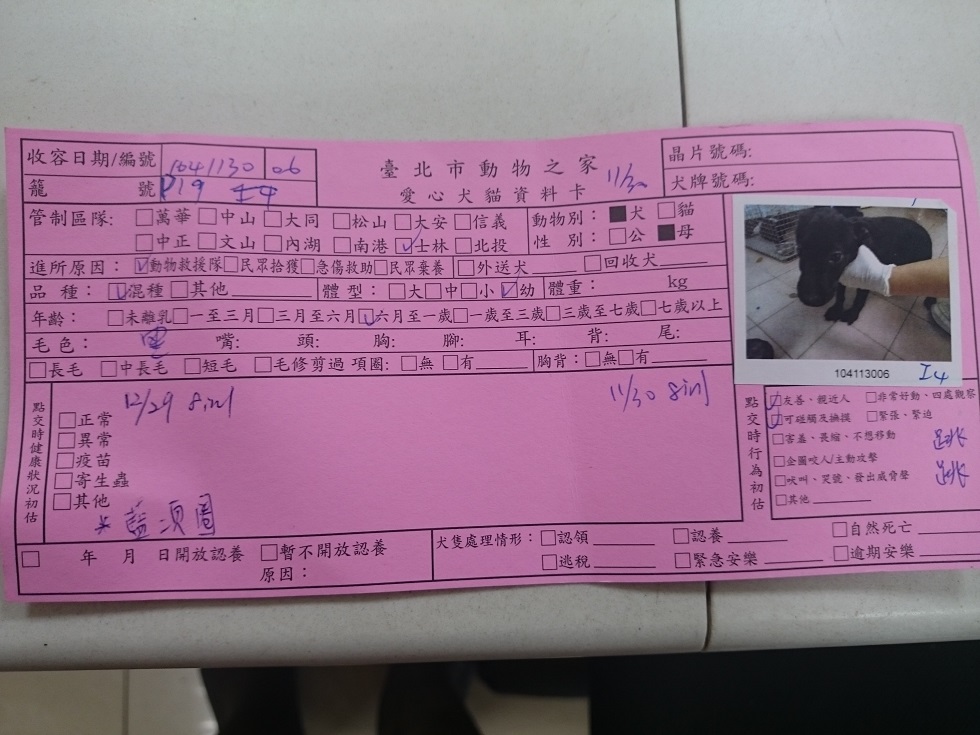 臺北市動物之家
愛心犬貓資料卡 11/30
收容日期/編號 1041130 06
籠號 P19 I4
晶片號碼:
犬牌號碼:
管制區隊: □萬華 □中山 □大同 □松山 □大安 □信義
□中正 □文山 □內湖 □南港 ☑士林 □北投
動物別: ■犬 □貓
性別: □公 ■母
進所原因: ☑動物救援隊 □民眾拾獲 □急傷救助 □民眾棄養 □外送犬 □回收犬
品種: ☑混種 □其他 體型: □大 □中 □小 ☑幼 體重: kg
年齡: □未離乳 □一至三月 □三月至六月 ☑六月至一歲 □一歲至三歲 □三歲至七歲 □七歲以上
毛色: 黑 嘴: 頭: 胸: 腳: 耳: 背: 尾:
□長毛 □中長毛 □短毛 □毛修剪過 項圈: □無 □有 胸背: □無 □有
104113006 I4
點交時健康狀況初估
12/29 8in1
11/30 8in1
□正常
□異常
□疫苗
□寄生蟲
□其他
*藍項圈
點交時行為初估
☑友善、親近人 □非常好動、四處觀察
☑可碰觸及撫摸 □緊張、緊迫
□害羞、畏縮、不想移動 跳
□企圖咬人/主動攻擊
□吠叫、哭號、發出威脅聲 跳
□其他
□ 年 月 日開放認養 □暫不開放認養
原因:
犬隻處理情形: □認領 □認養 □自然死亡
□逃稅 □緊急安樂 □逾期安樂